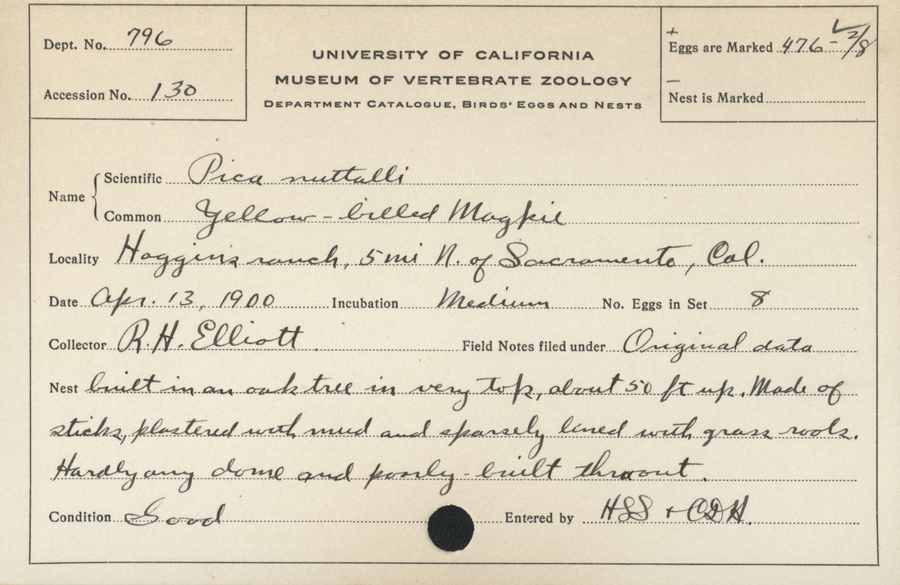 Dept. No. 796
Accession No. 130
UNIVERSITY OF CALIFORNIA
MUSEUM OF VERTEBRATE ZOOLOGY
DEPARTMENT CATALOGUE, BIRDS' EGGS AND NESTS
+
Eggs are Marked 476-2/8
–
Nest is Marked
Name
Scientific Pica nuttalli
Common Yellow-billed Magpie
Locality Haggin's ranch, 5 mi N. of Sacramento, Cal.
Date Apr. 13, 1900 Incubation Medium No. Eggs in Set 8
Collector R. H. Elliott Field Notes filed under Original data
Nest built in an oak tree in very top, about 50 ft up. Made of
sticks, plastered with mud and sparsely lined with grass roots.
Hardly any dome and poorly-built thruout.
Condition Good Entered by HSS + CDH.